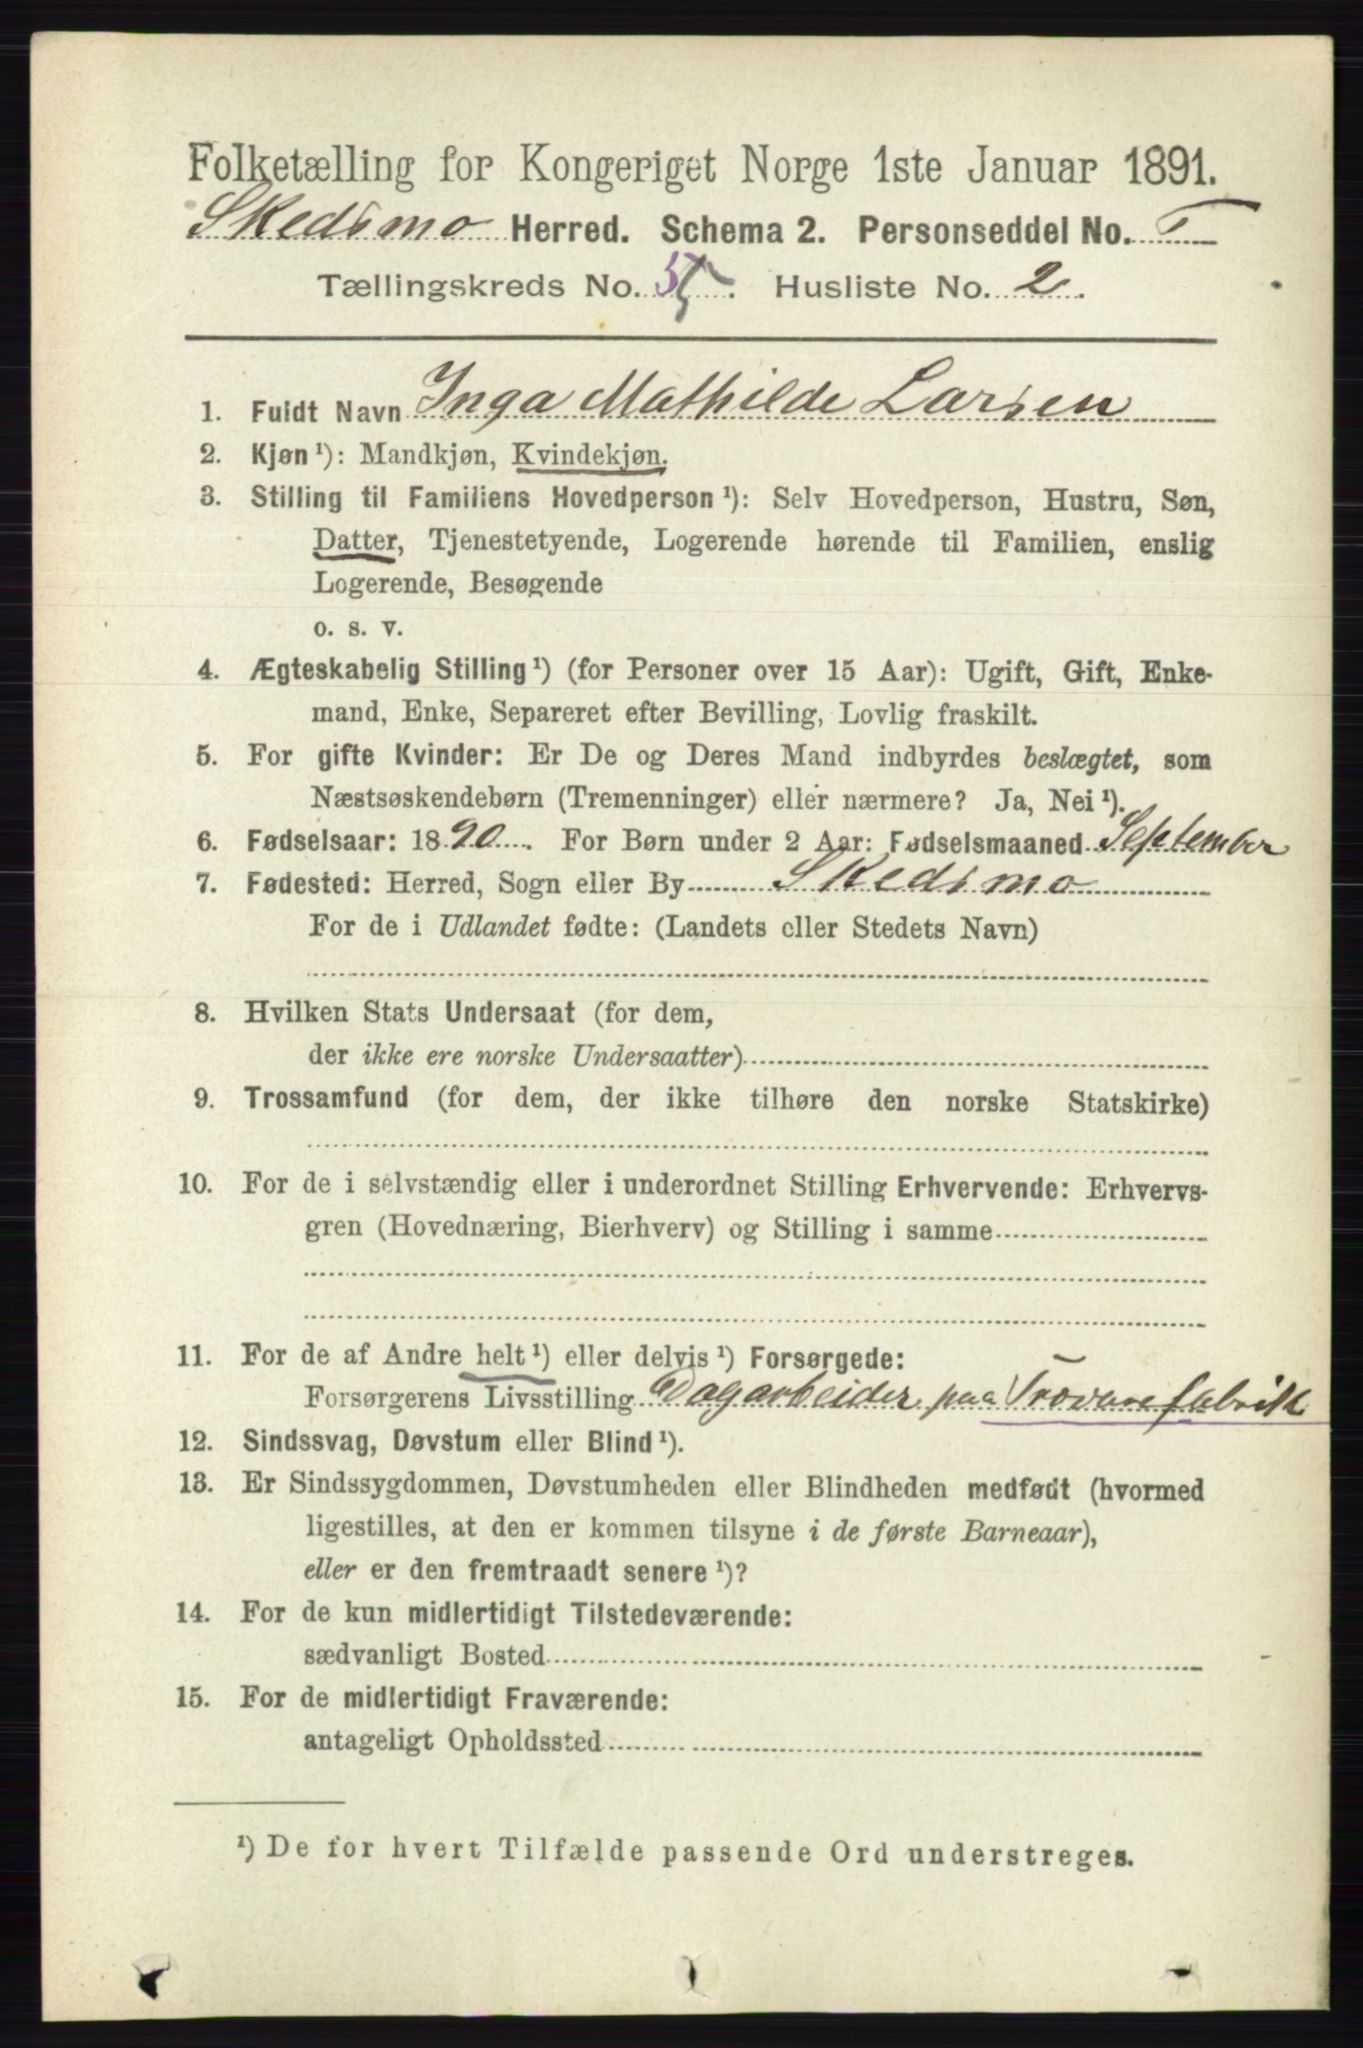 Folketælling for Kongeriget Norge 1ste Januar 1891.
Skedsmo Herred. Schema 2. Personseddel No.
Tællingskreds No. 5. Husliste No. 2.
1. Fuldt Navn Inga Mathilde Larsen
2. Kjøn ¹): Mandkjøn, Kvindekjøn.
3. Stilling til Familiens Hovedperson ¹): Selv Hovedperson, Hustru, Søn,
Datter, Tjenestetyende, Logerende hørende til Familien, enslig
Logerende, Besøgende
o. s. v.
4. Ægteskabelig Stilling ¹) (for Personer over 15 Aar): Ugift, Gift, Enke-
mand, Enke, Separeret efter Bevilling, Lovlig fraskilt.
5. For gifte Kvinder: Er De og Deres Mand indbyrdes beslægtet, som
Næstsøskendebørn (Tremenninger) eller nærmere? Ja, Nei ¹).
6. Fødselsaar: 1890. For Børn under 2 Aar: Fødselsmaaned September
7. Fødested: Herred, Sogn eller By Skedsmo
For de i Udlandet fødte: (Landets eller Stedets Navn)
8. Hvilken Stats Undersaat (for dem,
der ikke ere norske Undersaatter)
9. Trossamfund (for dem, der ikke tilhøre den norske Statskirke)
10. For de i selvstændig eller i underordnet Stilling Erhvervende: Erhvervs-
gren (Hovednæring, Bierhverv) og Stilling i samme
11. For de af Andre helt ¹) eller delvis ¹) Forsørgede:
Forsørgerens Livsstilling Dagarbeider paa Trævarefabrik
12. Sindssvag, Døvstum eller Blind ¹).
13. Er Sindssygdommen, Døvstumheden eller Blindheden medfødt (hvormed
ligestilles, at den er kommen tilsyne i de første Barneaar),
eller er den fremtraadt senere ¹)?
14. For de kun midlertidigt Tilstedeværende:
sædvanligt Bosted
15. For de midlertidigt Fraværende:
antageligt Opholdssted
¹) De for hvert Tilfælde passende Ord understreges.